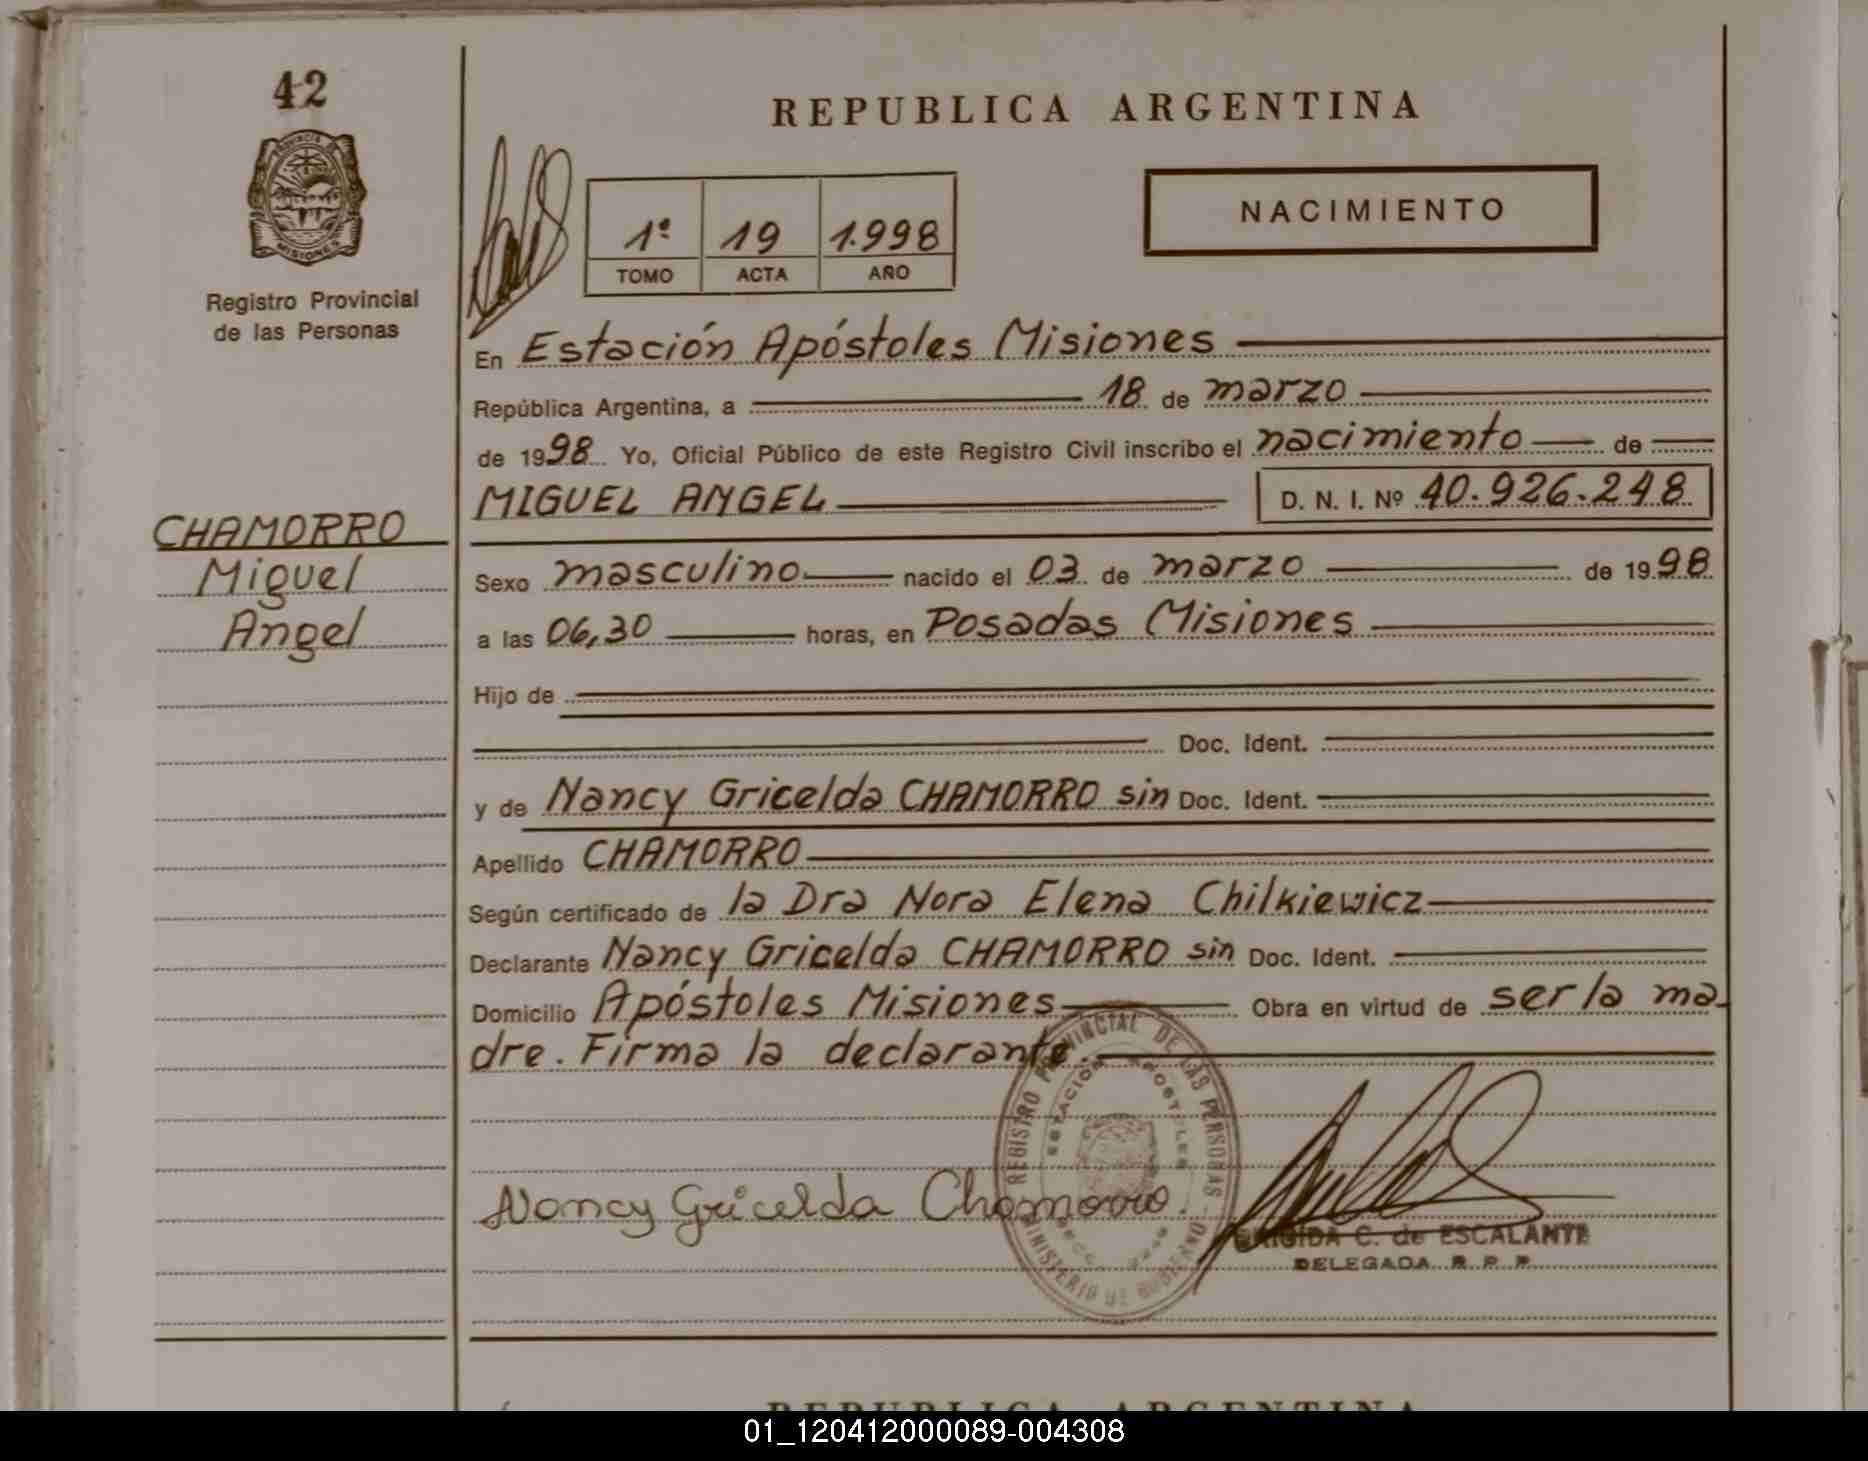 42
PROVINCIA DE
MISIONES
Registro Provincial
de las Personas
CHAMORRO
Miguel
Angel
REPUBLICA ARGENTINA
1º 19 1.998
TOMO ACTA AÑO
NACIMIENTO
En Estación Apóstoles Misiones
República Argentina, a 18 de marzo
de 1998 Yo, Oficial Público de este Registro Civil inscribo el nacimiento de
MIGUEL ANGEL D. N. I. Nº 40.926.248
Sexo masculino nacido el 03 de marzo de 1998
a las 06,30 horas, en Posadas Misiones
Hijo de
Doc. Ident.
y de Nancy Gricelda CHAMORRO sin Doc. Ident.
Apellido CHAMORRO
Según certificado de la Dra Nora Elena Chilkiewicz
Declarante Nancy Gricelda CHAMORRO sin Doc. Ident.
Domicilio Apóstoles Misiones Obra en virtud de ser la ma-
dre. Firma la declarante.
REGISTRO PROVINCIAL DE LAS PERSONAS - MINISTERIO DE GOBIERNO
ESTACION APOSTOLES
Nancy Gricelda Chamorro.
BRIGIDA C. de ESCALANTE
DELEGADA R. P. P.
REPUBLICA ARGENTINA
01_120412000089-004308